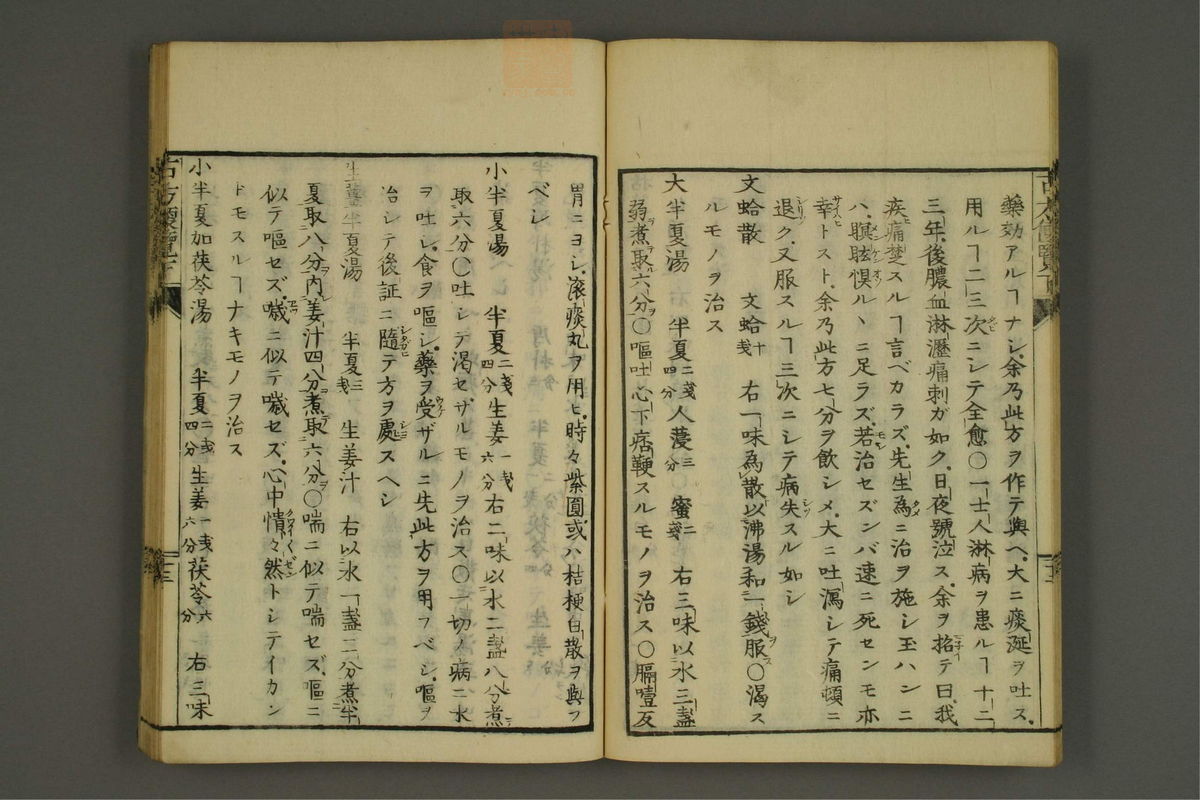 藥効アルヿナシ余乃此方ヲ作テ與ヘ大ニ痰涎ヲ吐ス
用ルヿ二三次ニシテ全愈○一士人淋病ヲ患ルヿ十二
三年後膿血淋瀝痛刺ガ如ク日夜號泣ス余ヲ招テ曰我
疾痛楚スルヿ言ベカラズ先生為ニ治ヲ施シ玉ハンニ
ハ瞑眩惧ルヽニ足ラズ若治セズンバ速ニ死センモ亦
幸トスト余乃此方七分ヲ飲シメ大ニ吐瀉シテ痛頓ニ
退ク又服スルヿ三次ニシテ病失スル如シ
文蛤散 文蛤十戔 右一味為散以沸湯和一錢服○渴ス
ルモノヲ治ス
大半夏湯 半夏二戔四分人蓡三分 蜜二戔 右三味以水三盞
弱煮取六分○嘔吐心下痞鞕スルモノヲ治ス○膈噎反
胃ニヨシ滚痰丸ヲ用ヒ時々紫圓或ハ桔梗白散ヲ與フ
ベシ
小半夏湯 半夏二戔四分生姜一戔六分右二味以水二盞八分煮
取六分○吐シテ渇セザルモノヲ治ス○一切ノ病ニ水
ヲ吐シ食ヲ嘔シ藥ヲ受ザルニ先此方ヲ用フベシ嘔ヲ
治シテ後証ニ隨テ方ヲ處スヘシ
生薑半夏湯 半夏三戔 生姜汁 右以水一盞二分煮半
夏取八分内姜汁四分煮取六分○喘ニ似テ喘セズ嘔ニ
似テ嘔セズ噦ニ似テ噦セズ心中憒々然トシテイカン
トモスルヿナキモノヲ治ス
小半夏加茯苓湯 半夏二戔四分生姜一戔六分茯苓六分 右三味